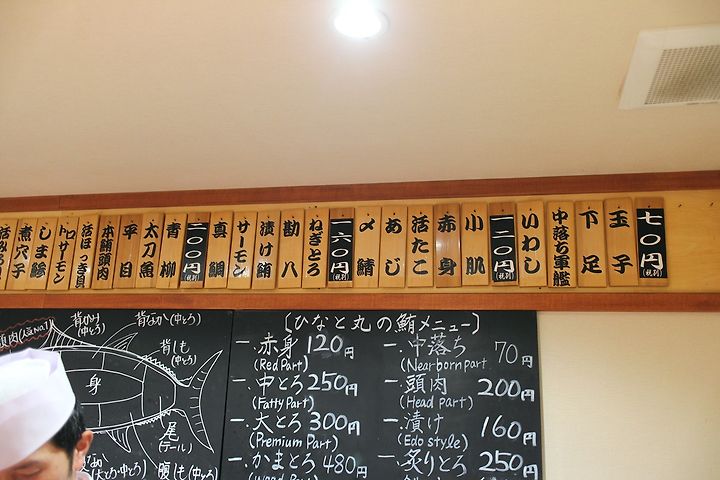 七〇円(税別)
玉子
下足
中落ち軍艦
いわし
一二〇円(税別)
小肌
赤身
活たこ
あじ
〆鯖
一六〇円(税別)
ねぎとろ
勘八
漬け鮪
サーモン
真鯛
二〇〇円(税別)
青柳
太刀魚
平目
本鮪頭肉
活ほっき貝
トロサーモン
しま鯵
煮穴子
頭肉(人気No.1)
背かみ(中とろ)
背なか(中とろ)
背しも(中とろ)
身
尾
(テール)
腹しも(中とろ)
〔ひなと丸の鮪メニュー〕
一、赤身 120円
(Red Part)
一、中とろ 250円
(Fatty Part)
一、大とろ 300円
(Premium Part)
一、かまとろ 480円
一、中落ち 70円
(Nearborn part
一、頭肉 200円
(Head part)
一、漬け 160円
(Edo style)
一、炙りとろ 250円